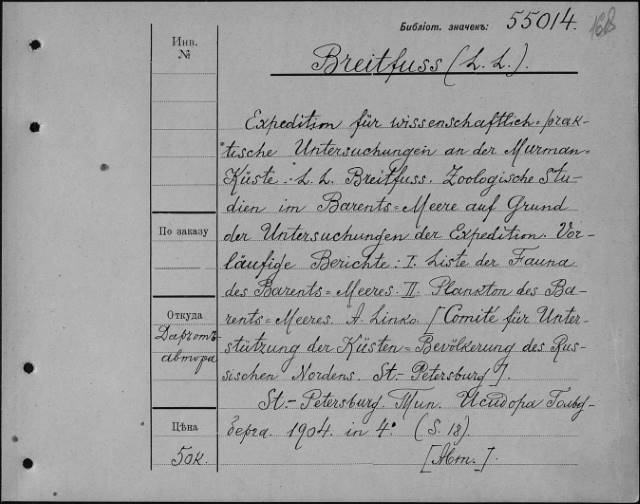 Библіот. значекъ: 55014. 168
Инв. №
Breitfuss (L. L.).
Expedition für wissenschaftlich-prak-
tische Untersuchungen an der Murman-
Küste. L. L. Breitfuss. Zoologische Stu-
dien im Barents-Meere auf Grund
По заказу
der Untersuchungen der Expedition. Vor-
läufige Berichte: I. Liste der Fauna
des Barents-Meeres. II. Plankton des Ba-
Откуда
rents-Meeres. A. Linko. [Comité für Unter-
Даръ отъ
автора
stützung der Küsten-Bevölkerung des Rus-
sischen Nordens. St.-Petersburg].
St.-Petersburg. Тип. Исидора Гольд-
Цѣна
берга. 1904. in 4° (S. 18)
50к.